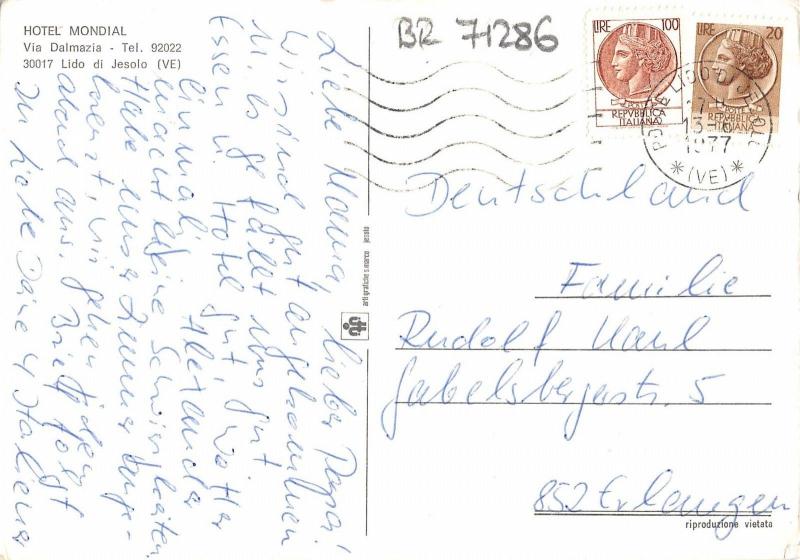 HOTEL MONDIAL
Via Dalmazia - Tel. 92022
30017 Lido di Jesolo (VE)
BR 71286
LIRE 100
REPVBBLICA
ITALIANA
LIRE 20
REPVBBLICA
ITALIANA
1977
(VE)
Liebe Mama, lieber Papa!
Wir sind gut angekommen
u. es gefällt uns gut
Essen u. Hotel gut, Wetter
einmalig. Alexander
macht keine Schwierigkeiten
Habe unser Zimmer
wir gehen jeden
Abend aus. Brief folgt
4 Italiener
arti grafiche s. marco jesolo
Deutschland
Familie
Rudolf
Gabelsbergerstr. 5
852 Erlangen
riproduzione vietata